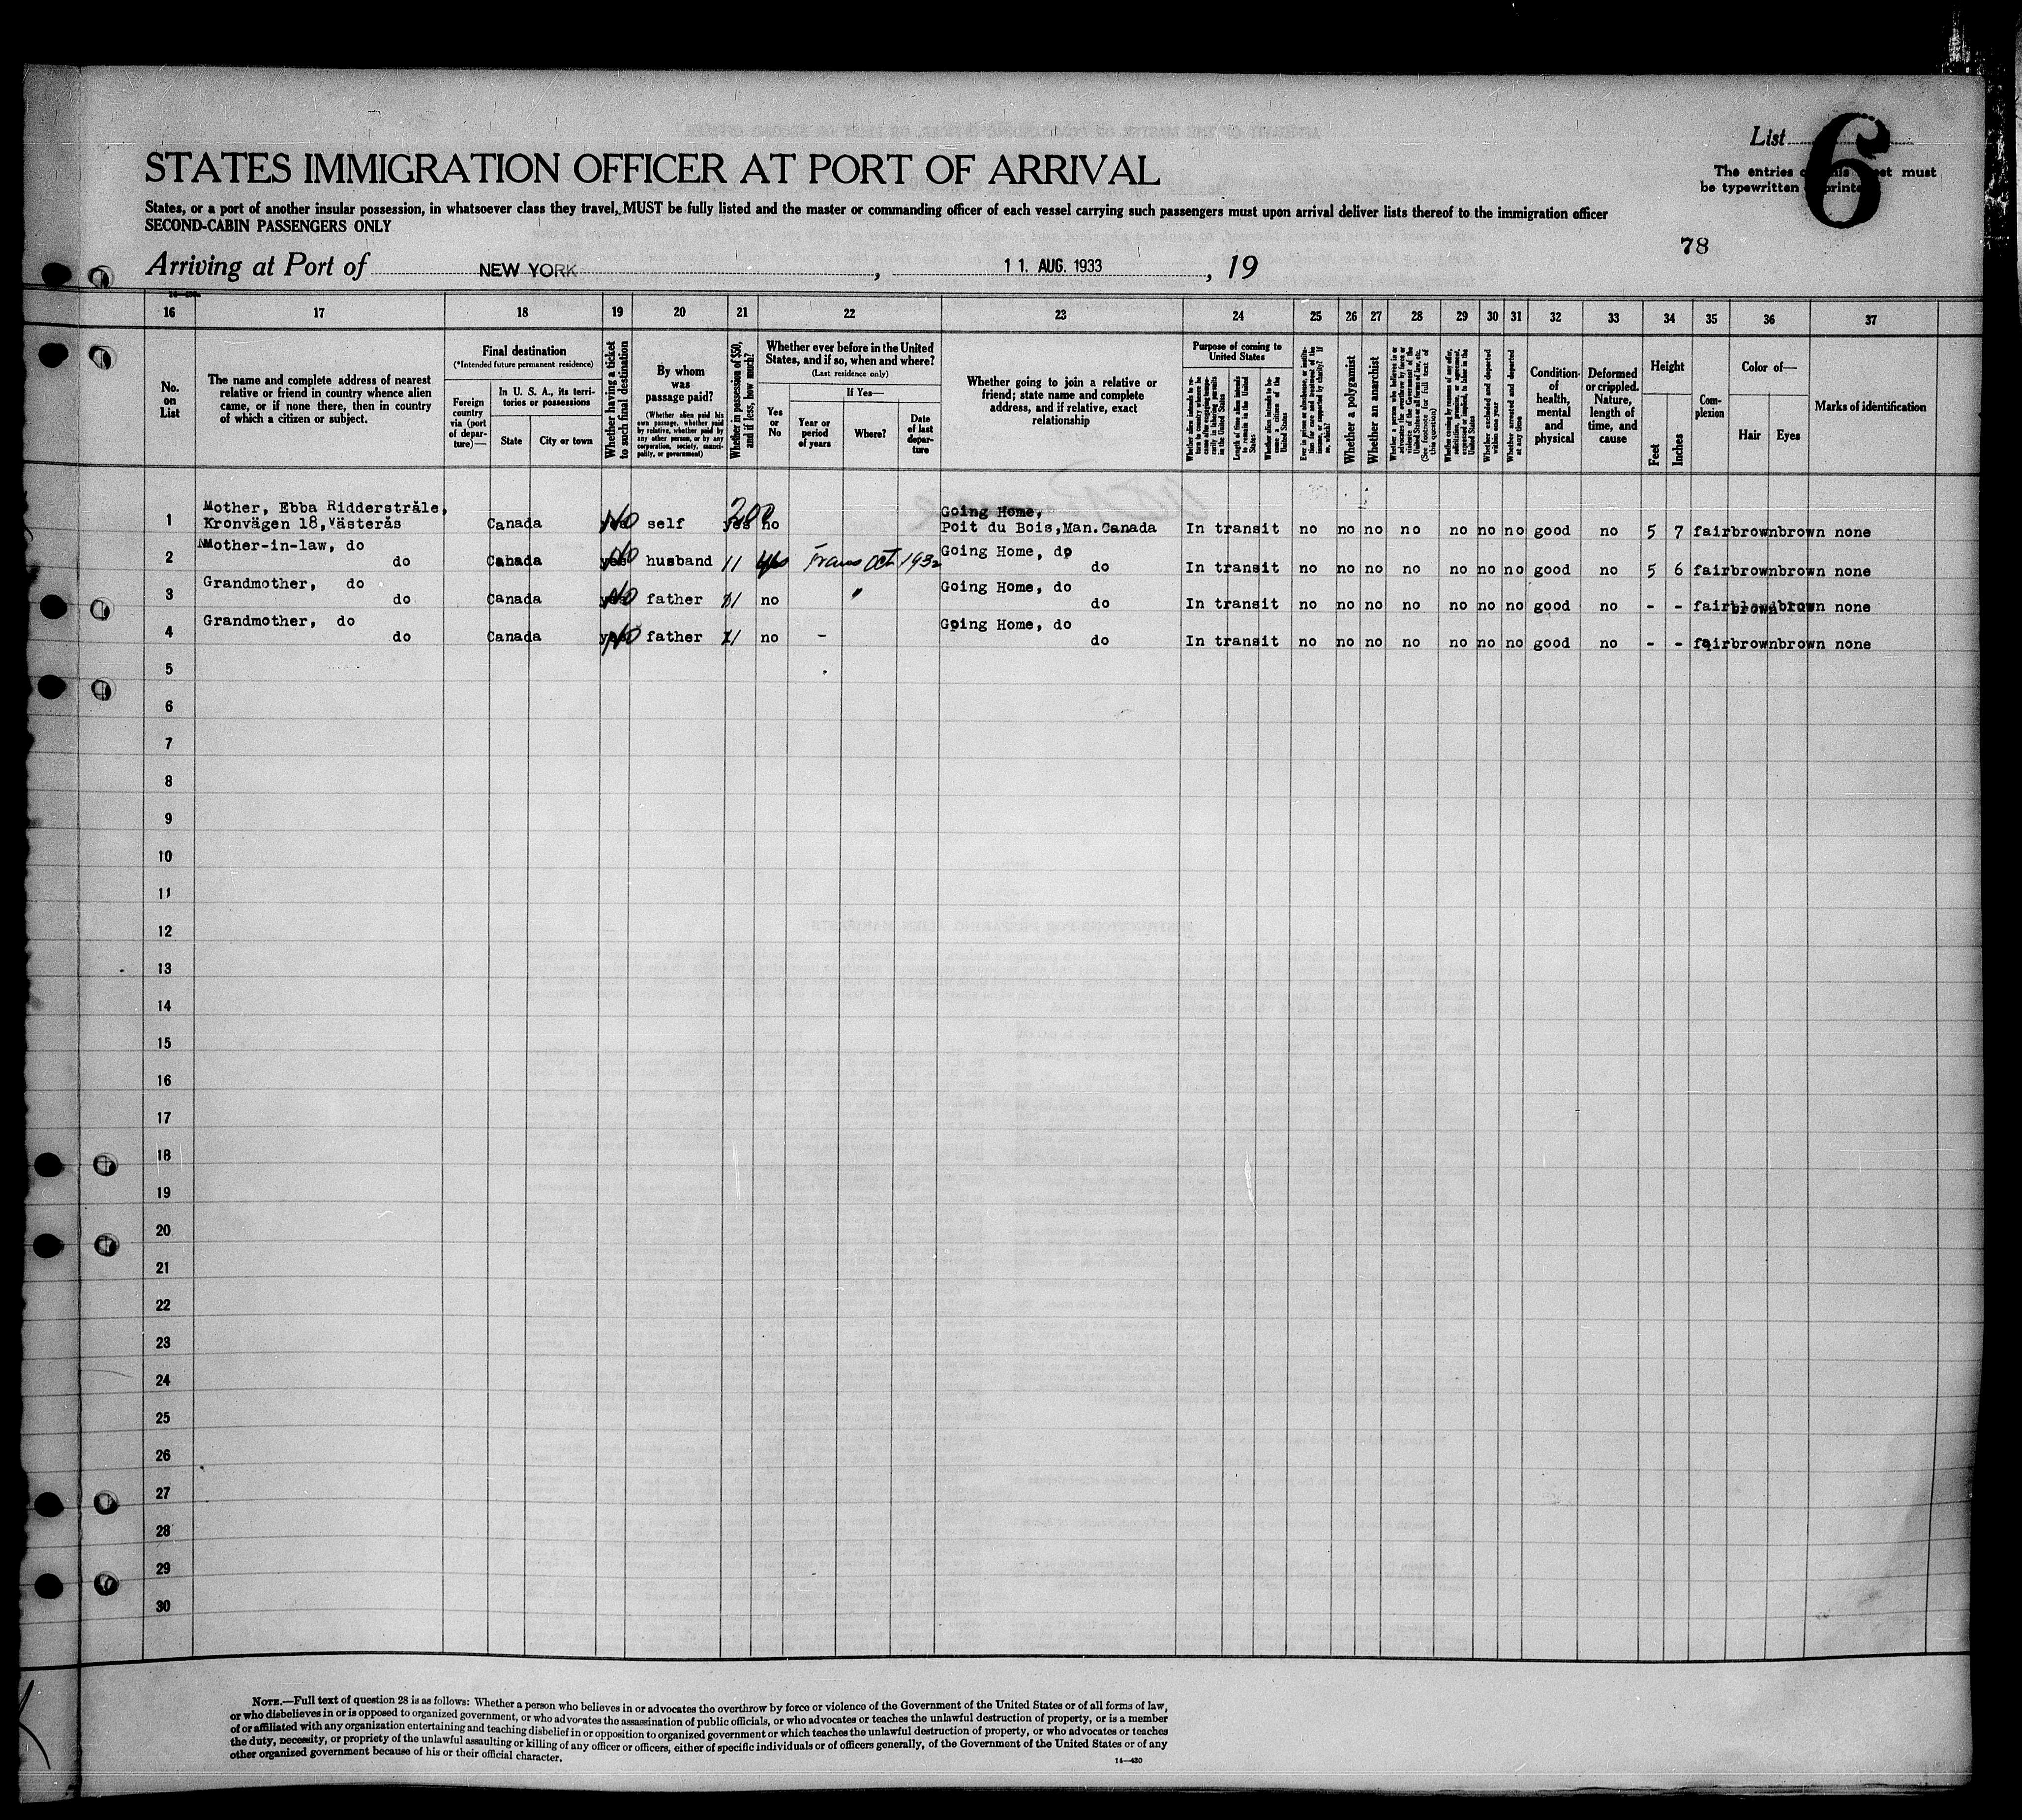 List 6
STATES IMMIGRATION OFFICER AT PORT OF ARRIVAL
The entries must
be typewritten
States, or a port of another insular possession, in whatsoever class they travel, MUST be fully listed and the master or commanding officer of each vessel carrying such passengers must upon arrival deliver lists thereof to the immigration officer
SECOND-CABIN PASSENGERS ONLY
78
Arriving at Port of NEW YORK , 11. AUG. 1933 , 19
16 17 18 19 20 21 22 23 24 25 26 27 28 29 30 31 32 33 34 35 36 37
No.
on
List
The name and complete address of nearest
relative or friend in country whence alien
came, or if none there, then in country
of which a citizen or subject.
Final destination
(*Intended future permanent residence)
Foreign
country
via (port
of depar-
ture)—
In U. S. A., its terri-
tories or possessions
State
City or town
Whether having a ticket
to such final destination
By whom
was
passage paid?
(Whether alien paid his
own passage, whether paid
by relative, whether paid by
any other person, or by any
corporation, society, munici-
pality, or government)
Whether in possession of $50,
and if less, how much?
Whether ever before in the United
States, and if so, when and where?
(Last residence only)
Yes
or
No
If Yes—
Year or
period
of years
Where?
Date
of last
depar-
ture
Whether going to join a relative or
friend; state name and complete
address, and if relative, exact
relationship
Purpose of coming to
United States
Whether alien intends to re-
turn to country whence he
came after engaging tempo-
rarily in laboring pursuits
in the United States
Length of time alien intends
to remain in the United
States
Whether alien intends to be-
come a citizen of the
United States
Ever in prison or almshouse, or institu-
tion for care and treatment of the
insane, or supported by charity? If
so, which?
Whether a polygamist
Whether an anarchist
Whether a person who believes in or
advocates the overthrow by force or
violence of the Government of the
United States or all forms of law, etc.
(See footnote for full text of
this question)
Whether coming by reason of any offer,
solicitation, promise, or agreement,
expressed or implied, to labor in the
United States
Whether excluded and deported
within one year
Whether arrested and deported
at any time
Condition
of
health,
mental
and
physical
Deformed
or crippled.
Nature,
length of
time, and
cause
Height
Feet
Inches
Com-
plexion
Color of—
Hair
Eyes
Marks of identification
Mother, Ebba Ridderstråle, 200 Going Home,
1 Kronvägen 18, Västerås Canada yes No self yes no Poit du Bois, Man. Canada In transit no no no no no no no good no 5 7 fair brown brown none
Mother-in-law, do Going Home, do
2 do Canada yes No husband 11 yes Trans Oct 1932 do In transit no no no no no no no good no 5 6 fair brown brown none
Grandmother, do Going Home, do
3 do Canada yes No father 11 no do In transit no no no no no no no good no - - fair brown brown none
Grandmother, do Going Home, do
4 do Canada yes No father 11 no - do In transit no no no no no no no good no - - fair brown brown none
5
6
7
8
9
10
11
12
13
14
15
16
17
18
19
20
21
22
23
24
25
26
27
28
29
30
NOTE.—Full text of question 28 is as follows: Whether a person who believes in or advocates the overthrow by force or violence of the Government of the United States or of all forms of law,
or who disbelieves in or is opposed to organized government, or who advocates the assassination of public officials, or who advocates or teaches the unlawful destruction of property, or is a member
of or affiliated with any organization entertaining and teaching disbelief in or opposition to organized government or which teaches the unlawful destruction of property, or who advocates or teaches
the duty, necessity, or propriety of the unlawful assaulting or killing of any officer or officers, either of specific individuals or of officers generally, of the Government of the United States or of any
other organized government because of his or their official character.
14—430